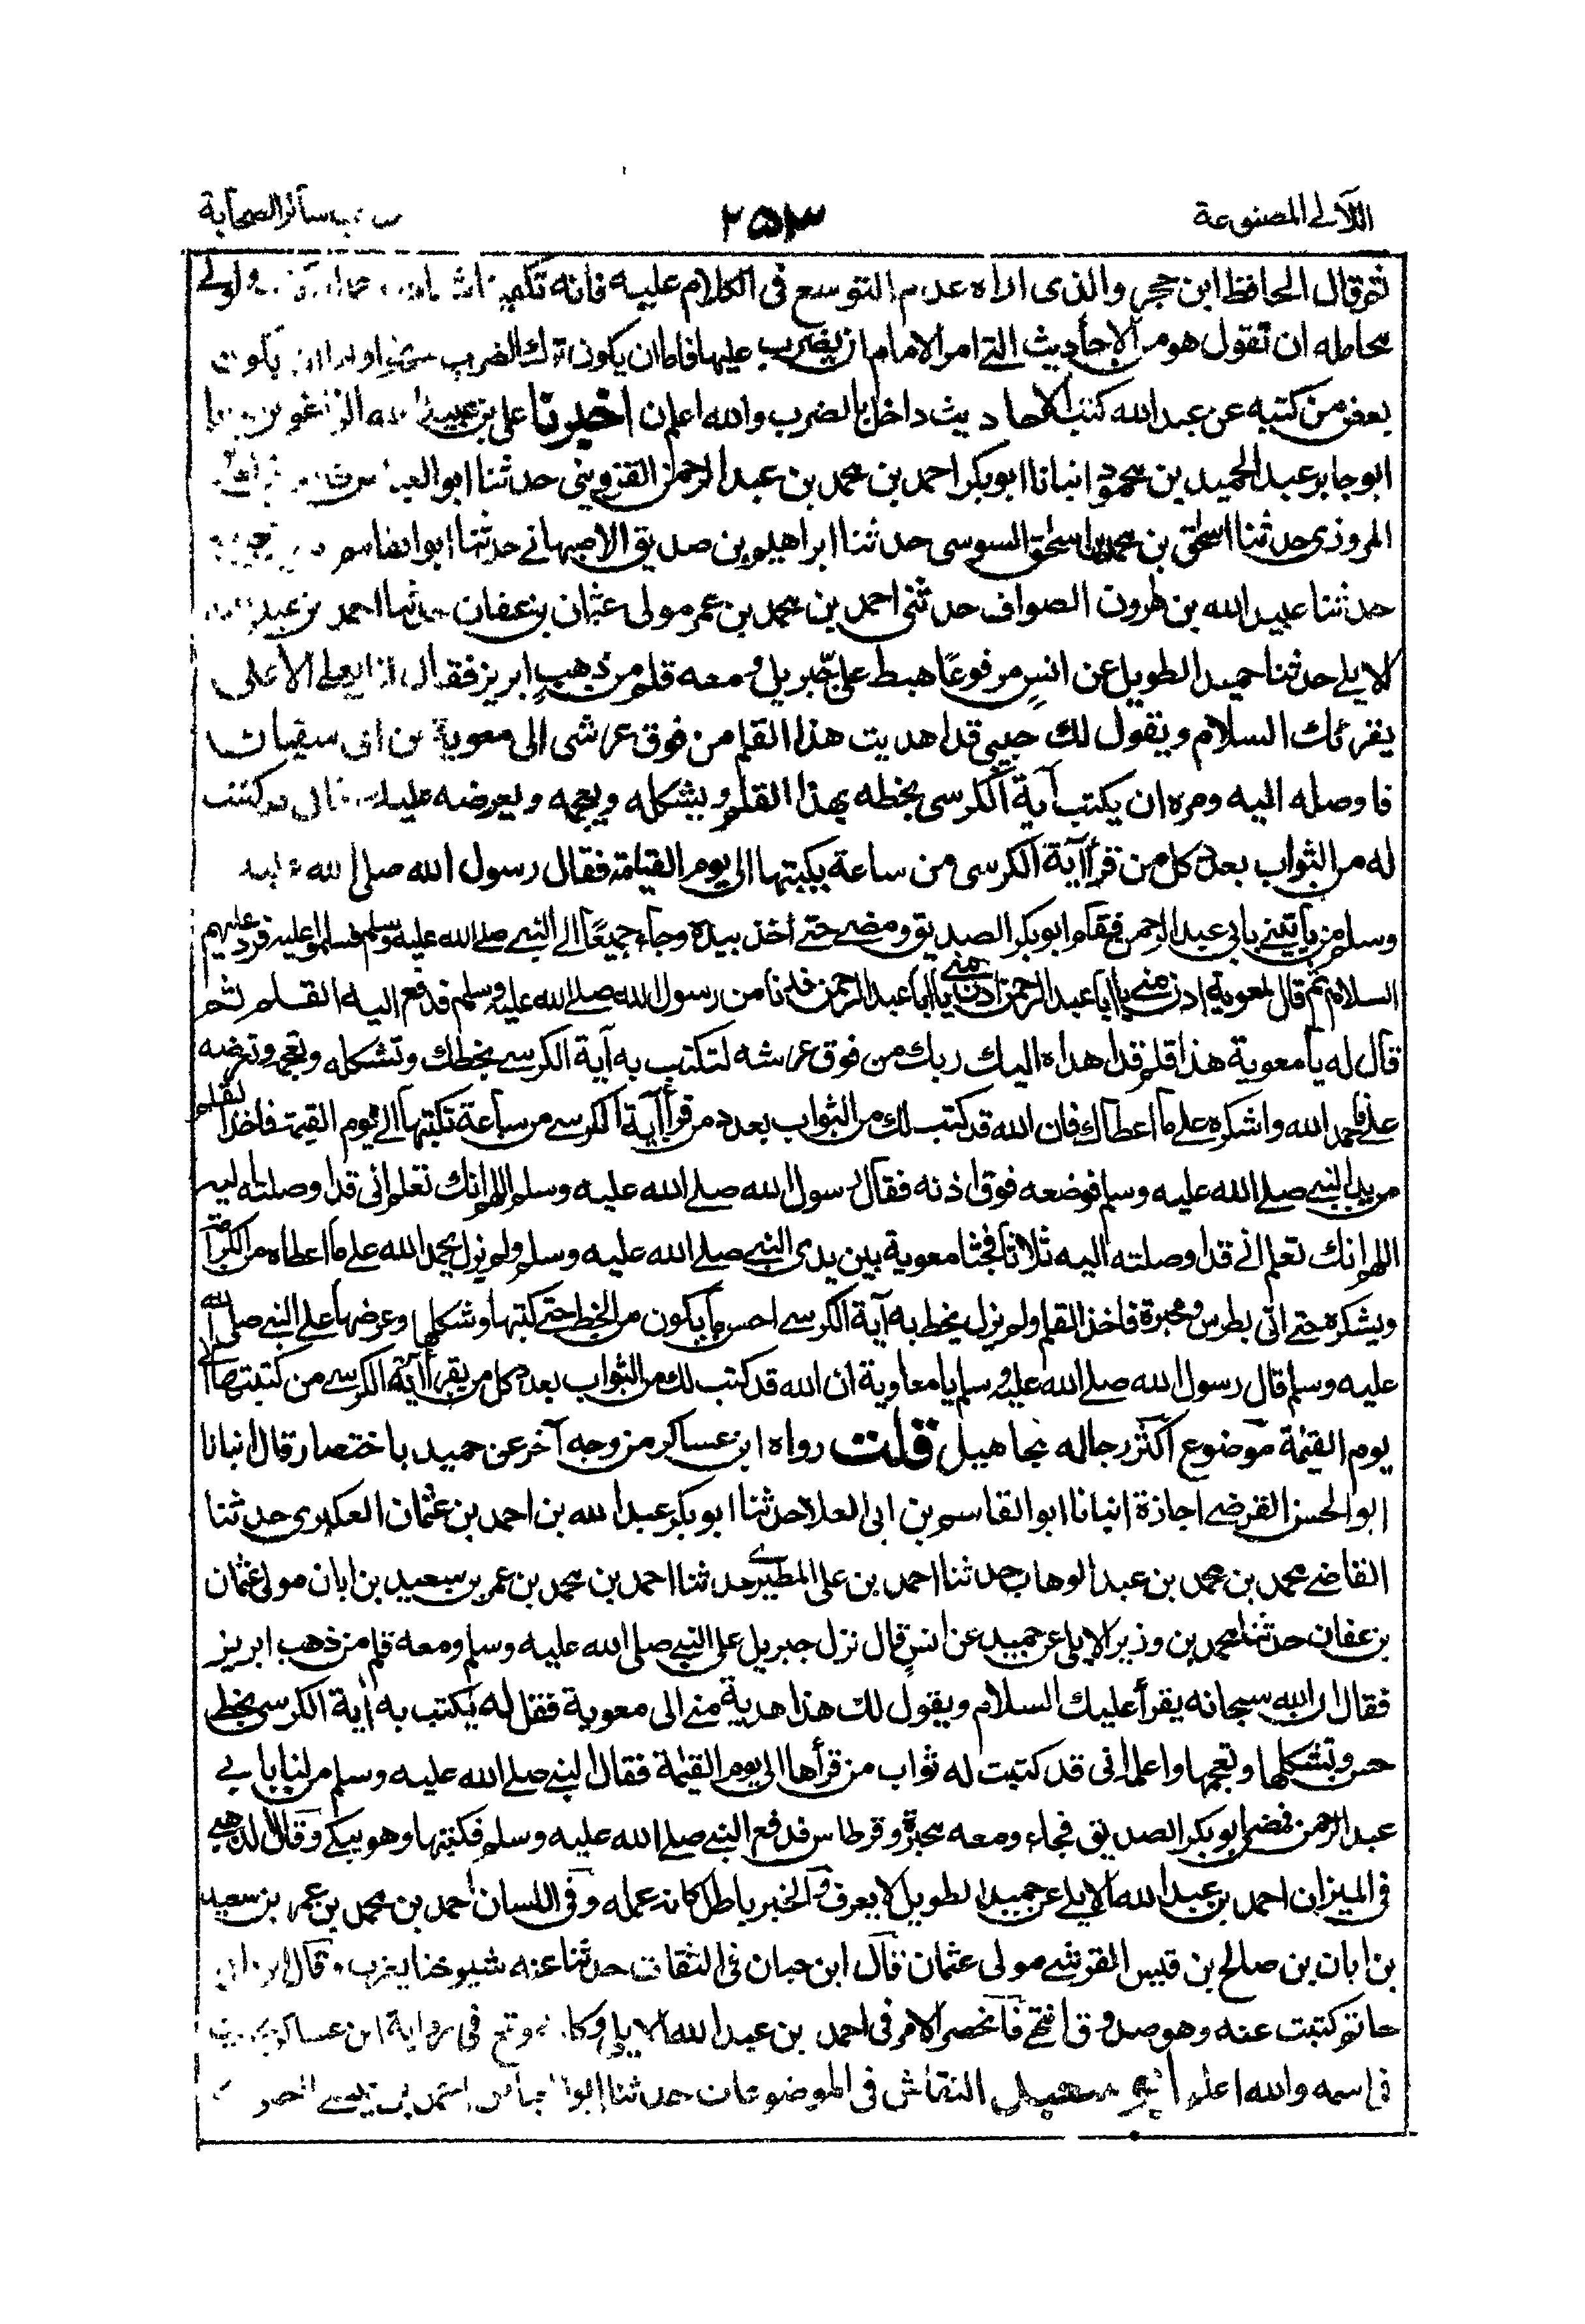 اللآلى المصنوعة ٢٥٣ الصحابة
ثم قال الحافظ ابن حجر والذى اراه عدم التوسع فى الكلام عليه فانه اولى
محامله ان تقول هو من الاحاديث التى امر الامام ان يضرب عليها فاما ان يكون ترك الضرب سهوا
بعض من كتبه عن عبد الله كتب الاحاديث داخل بالضرب والله اعلم ان اخبرنا على بن عبيد الله
ابو جابر عبد الحميد بن محمود انبانا ابو بكر احمد بن محمد بن عبد الرحمن القزوينى حدثنا
المروزى حدثنا اسحق بن محمد بن اسحق السوسى حدثنا ابراهيم بن صديق الاصبهانى حدثنا ابو القاسم
حدثنا عبيد الله بن هرون الصواف حدثنى احمد بن محمد بن عمر مولى عثمان بن عفان حدثنا احمد بن عبد
الايلى حدثنا حميد الطويل عن انس مرفوعًا هبط علىّ جبريل ومعه قلم من ذهب ابريز فقال ان العلى الأعلى
يقرئك السلام ويقول لك حبيبى قد اهديت هذا القلم من فوق عرشى الى معوية بن ابى سفيان
فاوصله اليه ومره ان يكتب آية الكرسى بخطه بهذا القلم ويشكله ويعجمه ويعرضه عليك كتبت
له من الثواب بعدد كل من قرأ آية الكرسى من ساعة يكتبها الى يوم القيامة فقال رسول الله صلى الله عليه
وسلم من يأتينى بابى عبد الرحمن فقام ابو بكر الصديق ومضى حتى أخذ بيده وجاء جميعًا الى النبى صلى الله عليه وسلم فسلموا عليه فرد عليهم
السلام ثم قال لمعوية ادن منى يا ابا عبد الرحمن ادن منى يا ابا عبد الرحمن فدنا من رسول الله صلى الله عليه وسلم فدفع اليه القلم ثم
قال له يا معوية هذا قلم قد اهداه اليك ربك من فوق عرشه لتكتب به آية الكرسى بخطك وتشكله وتعجمه وتعرضه
على فاحمد الله واشكره على ما اعطاك فان الله قد كتب لك من الثواب بعدد من قرأ آية الكرسى من ساعة تكتبها الى يوم القيمة فاخذ القلم
من يد النبى صلى الله عليه وسلم فوضعه فوق اذنه فقال رسول الله صلى الله عليه وسلم اللهم انك تعلم انى قد اوصلته اليه
اللهم انك تعلم انى قد اوصلته اليه ثلاثا فجثا معوية بين يدى النبى صلى الله عليه وسلم ولم يزل يحمد الله على ما اعطاه من الكرامة
ويشكره حتى اتى بطرس ومحبرة فاخذ القلم ولم يزل يخط به آية الكرسى احسن ما يكون من الخط حتى كتبها وشكلها وعرضها على النبى صلى الله
عليه وسلم قال رسول الله صلى الله عليه وسلم يا معاوية ان الله قد كتب لك من الثواب بعدد كل من يقرأ آية الكرسى من كتبتها الى
يوم القيمة موضوع اكثر رجاله مجاهيل قلت رواه ابن عساكر من وجه آخر عن حميد باختصار قال انبانا
ابو الحسن القرضى اجازة انبانا ابو القاسم بن ابى العلا حدثنا ابو بكر عبد الله بن احمد بن عثمان العكبرى حدثنا
القاضى محمد بن محمد بن عبد الوهاب حدثنا احمد بن على المطيرى حدثنا احمد بن محمد بن عمر بن سعيد بن ابان مولى عثمان
بن عفان حدثنا محمد بن وزير الايلى عن حميد عن انس قال نزل جبريل على النبى صلى الله عليه وسلم ومعه قلم من ذهب ابريز
فقال ان الله سبحانه يقرأ عليك السلام ويقول لك هذا هدية منى الى معوية فقل له يكتب به آية الكرسى بخط
حسن وتشكلها وتعجمها واعلم انى قد كتبت له ثواب من قرأها الى يوم القيمة فقال النبى صلى الله عليه وسلم من لنا بابى
عبد الرحمن فمضى ابو بكر الصديق فجاء ومعه محبرة وقرطاس فدفع النبى صلى الله عليه وسلم فكتبها وهو يبكى وقال الذهبى
فى الميزان احمد بن عبد الله الايلى عن حميد الطويل لا يعرف والخبر باطل كانه عمله وفى اللسان احمد بن محمد بن عمر بن سعيد
بن ابان بن صالح بن قبيس القرشى مولى عثمان قال ابن حبان فى الثقات حدثنا عنه شيوخنا يغرب وقال ابن ابى
حاتم كتبت عنه وهو صدوق انتهى فانحصر الامر فى احمد بن عبد الله الايلى وكانه وقع فى رواية ابن عساكر
فى اسمه والله اعلم النقاش فى الموضوعات حدثنا ابو